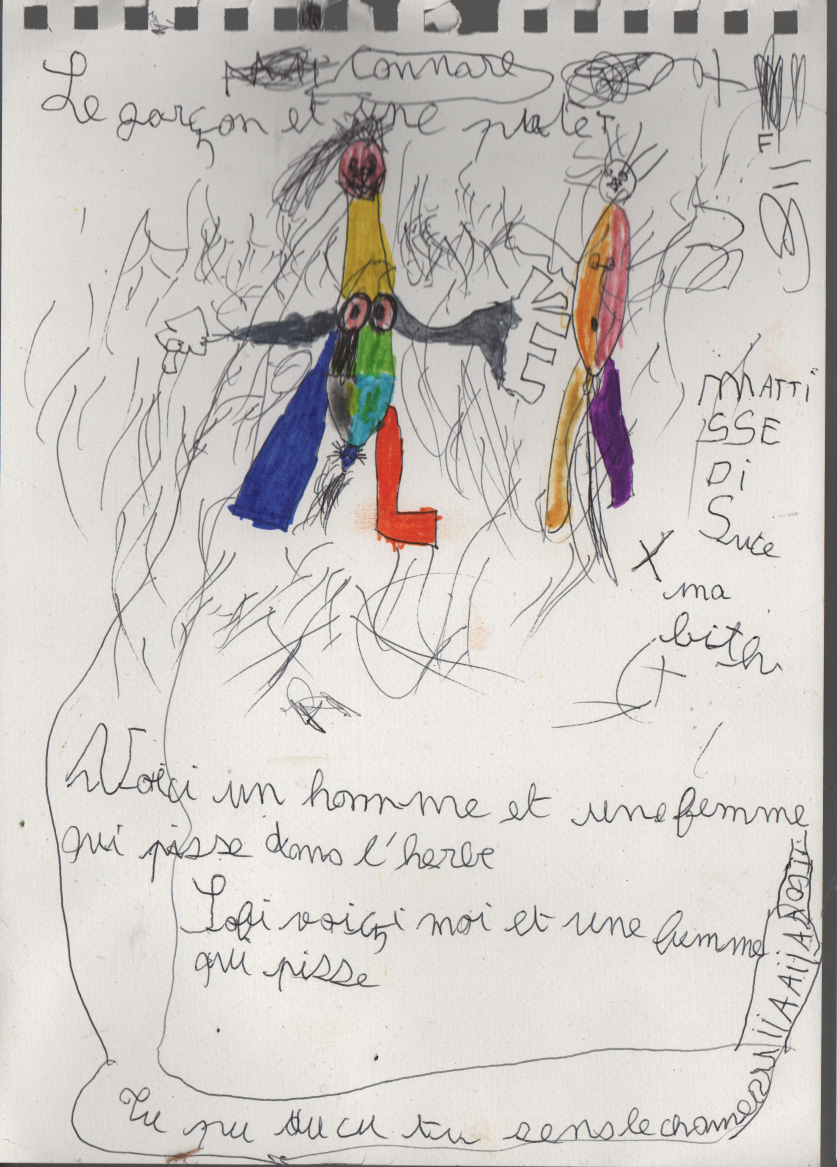 Connare
Le garçon et une
F
MATTI
SSE
Di
Suce
ma
bith
Voici un homme et une femme
qui pisse dans l'herbe
voiçi moi et une femme
qui pisse
Tu pu du cu tu sens le